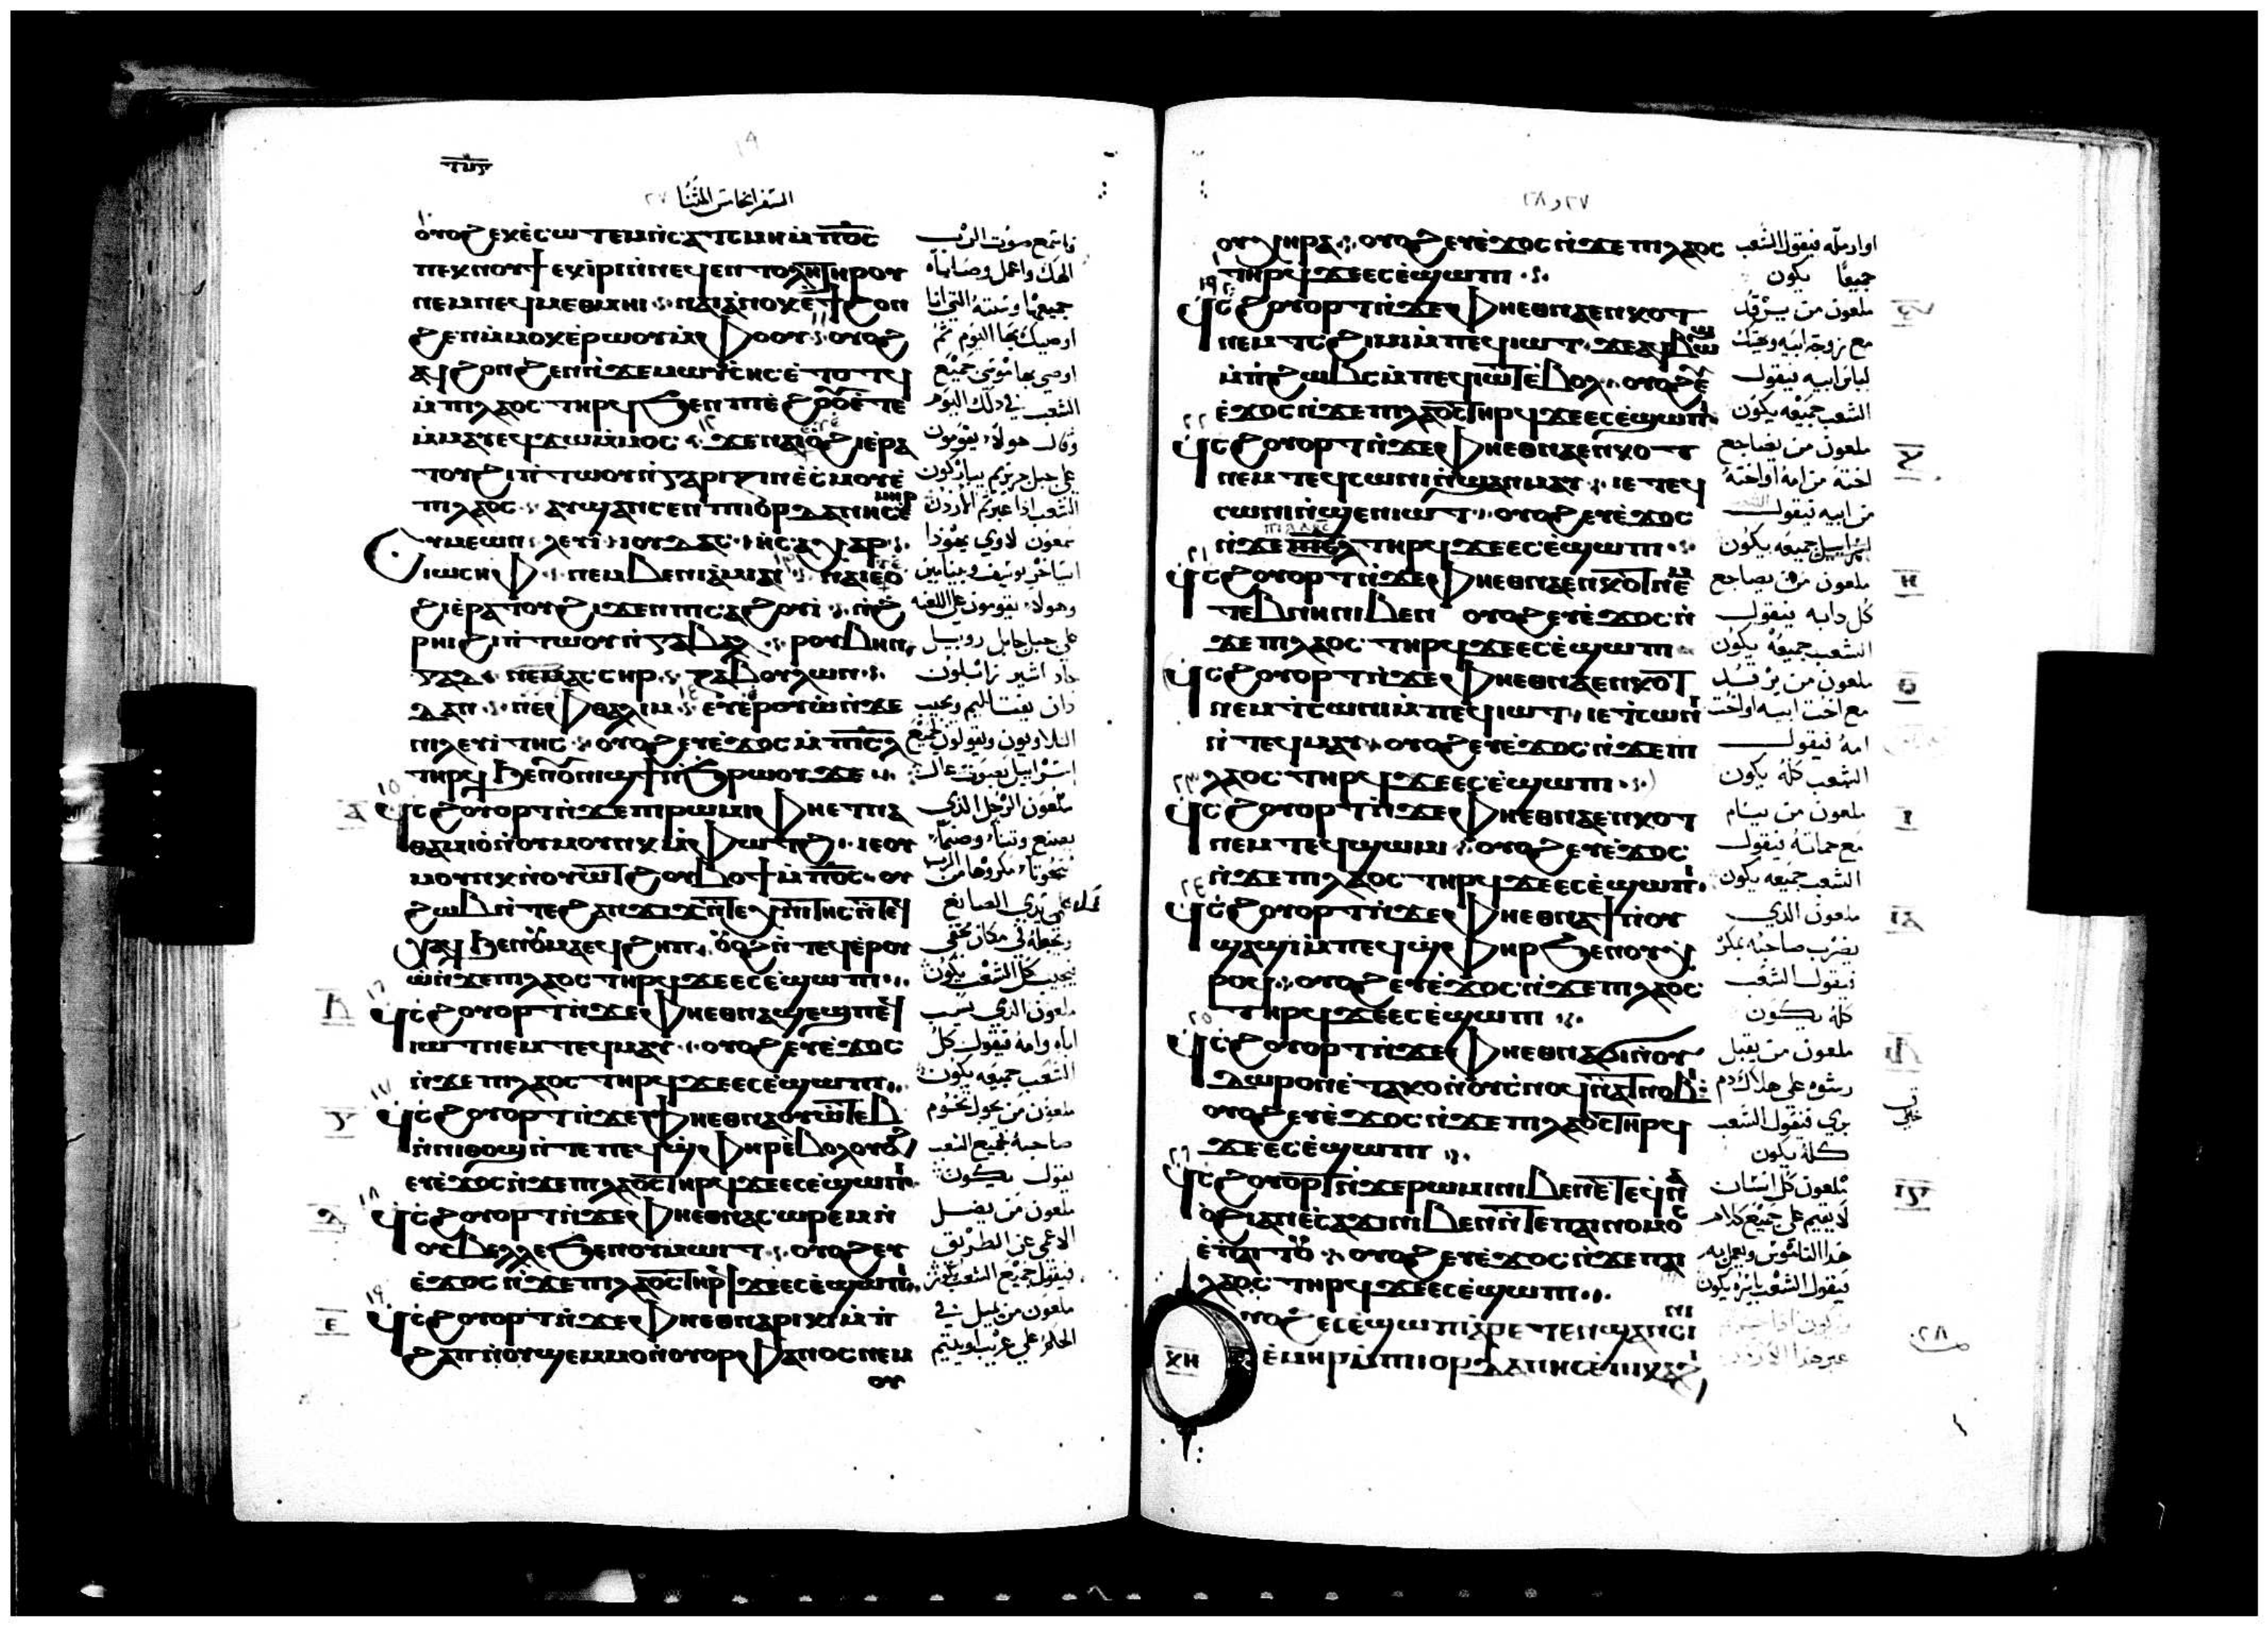 السفر الخامس المثنا ٢٧
ⲟⲩⲟϩ ⲉⲕⲉ̀ⲥⲱⲧⲉⲙ ⲛ̀ⲥⲁ ⲧⲥⲙⲏ ⲙ̀ⲡⲟ̅ⲥ̅
ⲡⲉⲕⲛⲟⲩϯ ⲉⲕⲓ̀ⲣⲓ ⲛ̀ⲛⲉϥⲉⲛⲧⲟⲗⲏ ⲧⲏⲣⲟⲩ
ⲛⲉⲙ ⲛⲉϥⲙⲉⲑⲙⲏⲓ ⲛⲁⲓ ⲁ̀ⲛⲟⲕ ⲉ̀ϯϩⲟⲛ
ϩⲉⲛ ⲙ̀ⲙⲟⲕ ⲉ̀ⲣⲱⲟⲩ ⲙ̀ⲫⲟⲟⲩ ⲟⲩⲟϩ
ⲁϥϩⲟⲛϩⲉⲛ ⲛ̀ϫⲉ ⲙⲱⲩ̀ⲥⲏⲥ ⲉ̀ⲧⲟⲧϥ
ⲙ̀ⲡⲓⲗⲁⲟⲥ ⲧⲏⲣϥ ϧⲉⲛ ⲡⲓⲉ̀ϩⲟⲟⲩ ⲉ̀ⲧⲉ
ⲙ̀ⲙⲁⲩ ⲉϥϫⲱ ⲙ̀ⲙⲟⲥ ϫⲉ ⲛⲁⲓ ⲉⲩⲉ̀ⲟ̀ϩⲓ ⲉ̀ⲣⲁ
ⲧⲟⲩ ϩⲓ ⲡⲓⲧⲱⲟⲩ ⲛ̀ⲅⲁⲣⲓⲍⲓⲛ ⲉ̀ⲥⲙⲟⲩ ⲉ̀
ⲡⲓⲗⲁⲟⲥ ⲁⲩϣⲁⲛⲥⲉⲛ ⲡⲓⲓⲟⲣⲇⲁⲛⲏⲥ ⲉ̀ⲙⲏⲣ
ⲥⲩⲙⲉⲱⲛ ⲗⲉⲩⲓ̀ ⲓⲟⲩⲇⲁⲥ ⲏ̀ⲥⲁⲭⲁⲣ
ⲓⲱⲥⲏⲫ ⲛⲉⲙ ⲃⲉⲛⲓⲁⲙⲓⲛ ⲛⲁⲓ ⲉⲩⲉ̀ⲟ̀
ϩⲓ ⲉ̀ⲣⲁⲧⲟⲩ ϩⲓϫⲉⲛ ⲡⲓⲥⲁϩⲟⲩⲓ̀ ⲛ̀ϩ
ⲣⲏⲓ ϩⲓ ⲡⲓⲧⲱⲟⲩ ⲛ̀ⲅⲉⲃⲁⲗ ⲣⲟⲩⲃⲏⲛ
ⲅⲁⲇ ⲛⲉⲙ ⲁⲥⲏⲣ ⲍⲁⲃⲟⲩⲗⲱⲛ
ⲇⲁⲛ ⲛⲉⲫⲑⲁⲗⲓⲙ ⲉⲩⲉ̀ⲉⲣⲟⲩⲱ ⲛ̀ϫⲉ
ⲡⲓⲗⲉⲩⲓ̀ⲧⲏⲥ ⲟⲩⲟϩ ⲉⲩⲉ̀ϫⲟⲥ ⲙ̀ⲡⲓⲥ̅ⲗ̅
ⲧⲏⲣϥ ϧⲉⲛ ⲟⲩⲛⲓϣϯ ⲛ̀ϧⲣⲱⲟⲩ ϫⲉ
ϥⲥϩⲟⲩⲟⲣⲧ ⲛ̀ϫⲉ ⲡⲓⲣⲱⲙⲓ ⲫⲏ ⲉⲧⲛⲁ
ⲑⲁⲙⲓⲟ̀ ⲛ̀ⲟⲩⲙⲟⲩⲛⲕ ⲙ̀ⲫⲱⲧϩ ⲓⲉ ⲟⲩ
ⲙⲟⲩⲛⲕ ⲛ̀ⲟⲩⲱⲧϩ ⲟⲩⲃⲟϯ ⲙ̀ⲡⲟ̅ⲥ̅ ⲟⲩ
ϩⲱⲃ ⲛ̀ⲧⲉ ϩⲁⲛϫⲓϫ ⲛ̀ⲧⲉⲭⲛⲓⲧⲏⲥ ⲛ̀ⲧⲉϥ
ⲭⲁϥ ϧⲉⲛ ⲟⲩⲙⲁ ⲉϥϩⲏⲡ ⲟⲩⲟϩ ⲛ̀ⲧⲉϥⲉⲣⲟⲩ
ⲱ ⲛ̀ϫⲉ ⲡⲓⲗⲁⲟⲥ ⲧⲏⲣϥ ϫⲉ ⲉⲥⲉ̀ϣⲱⲡⲓ
ϥⲥϩⲟⲩⲟⲣⲧ ⲛ̀ϫⲉ ⲫⲏ ⲉⲑⲛⲁϣⲉϣ ⲡⲉϥ
ⲓⲱⲧ ⲛⲉⲙ ⲧⲉϥⲙⲁⲩ ⲟⲩⲟϩ ⲉⲩⲉ̀ϫⲟⲥ
ⲛ̀ϫⲉ ⲡⲓⲗⲁⲟⲥ ⲧⲏⲣϥ ϫⲉ ⲉⲥⲉ̀ϣⲱⲡⲓ
ϥⲥϩⲟⲩⲟⲣⲧ ⲛ̀ϫⲉ ⲫⲏ ⲉⲑⲛⲁⲟⲩⲱⲧⲉⲃ
ⲛ̀ⲛⲓⲑⲱϣ ⲛ̀ⲧⲉ ⲡⲉϥϣ̀ⲫⲏⲣ ⲉ̀ⲃⲟⲗ ⲟⲩⲟϩ
ⲉⲩⲉ̀ϫⲟⲥ ⲛ̀ϫⲉ ⲡⲓⲗⲁⲟⲥ ⲧⲏⲣϥ ϫⲉ ⲉⲥⲉ̀ϣⲱⲡⲓ
ϥⲥϩⲟⲩⲟⲣⲧ ⲛ̀ϫⲉ ⲫⲏ ⲉⲑⲛⲁⲥⲱⲣⲉⲙ ⲛ̀
ⲟⲩⲃⲉⲗⲗⲉ ϧⲉⲛ ⲟⲩⲙⲱⲓⲧ ⲟⲩⲟϩ ⲉⲩ
ⲉ̀ϫⲟⲥ ⲛ̀ϫⲉ ⲡⲓⲗⲁⲟⲥ ⲧⲏⲣϥ ϫⲉ ⲉⲥⲉ̀ϣⲱⲡⲓ
ϥⲥϩⲟⲩⲟⲣⲧ ⲛ̀ϫⲉ ⲫⲏ ⲉⲑⲛⲁⲣⲓⲕⲓ ⲙ̀ⲡ
ϩⲁⲡ ⲛ̀ⲟⲩϣⲉⲙⲙⲟ ⲛ̀ⲟⲩⲟⲣⲫⲁⲛⲟⲥ ⲛⲉⲙ
ⲟⲩ
فاسمع صوت الرب
الهك واعمل وصاياه
جميعها وسننه التي انا
اوصيك بها اليوم ثم
اوصى بها موسى جميع
الشعب في ذلك اليوم
وقال هولاء يقومون
على جبل جريزيم يباركون
الشعب اذا عبرتم الاردن
شمعون لاوي يهوذا
ايساخر يوسف وبنيامين
وهولاء يقومون على اللعنه
على جبل جابل روبيل
جاد اشير زابلون
دان نفتاليم ويجيب
اللاويون ويقولون لجميع
اسراييل بصوت عال
ملعون الرجل الذي
يصنع وثنا وصنما
منحوتا مكروها من الرب
عمل يدي الصانع
ويجعله في مكان مخفي
فيجيب كل الشعب يكون
ملعون الذي يسب
اباه وامه فيقول كل
الشعب جميعه يكون
ملعون من يحول تخوم
صاحبه لجميع الشعب
يقول يكون
ملعون من يضل
الاعمى عن الطريق
فيقول جميع الشعب يكون
ملعون من يميل في
الحكم على غريب او يتيم
٢٧ و ٢٨
ⲟⲩⲭⲏⲣⲁ ⲟⲩⲟϩ ⲉⲩⲉ̀ϫⲟⲥ ⲛ̀ϫⲉ ⲡⲓⲗⲁⲟⲥ
ⲧⲏⲣϥ ϫⲉ ⲉⲥⲉ̀ϣⲱⲡⲓ
ϥⲥϩⲟⲩⲟⲣⲧ ⲛ̀ϫⲉ ⲫⲏ ⲉⲑⲛⲁⲉⲛⲕⲟⲧ
ⲛⲉⲙ ⲧⲥϩⲓⲙⲓ ⲙ̀ⲡⲉϥⲓⲱⲧ ϫⲉ ⲁϥϭⲱⲣⲡ
ⲙ̀ⲡϩⲱⲃⲥ ⲙ̀ⲡⲉϥⲓⲱⲧ ⲉ̀ⲃⲟⲗ ⲟⲩⲟϩ ⲉⲩ
ⲉ̀ϫⲟⲥ ⲛ̀ϫⲉ ⲡⲓⲗⲁⲟⲥ ⲧⲏⲣϥ ϫⲉ ⲉⲥⲉ̀ϣⲱⲡⲓ
ϥⲥϩⲟⲩⲟⲣⲧ ⲛ̀ϫⲉ ⲫⲏ ⲉⲑⲛⲁⲉⲛⲕⲟⲧ
ⲛⲉⲙ ⲧⲉϥⲥⲱⲛⲓ ⲛ̀ϣⲉⲛⲙⲁⲩ ⲓⲉ ⲧⲉϥ
ⲥⲱⲛⲓ ⲛ̀ϣⲉⲛⲓⲱⲧ ⲟⲩⲟϩ ⲉⲩⲉ̀ϫⲟⲥ
ⲛ̀ϫⲉ ⲡⲓⲥ̅ⲗ̅ ⲧⲏⲣϥ ϫⲉ ⲉⲥⲉ̀ϣⲱⲡⲓ
ϥⲥϩⲟⲩⲟⲣⲧ ⲛ̀ϫⲉ ⲫⲏ ⲉⲑⲛⲁⲉⲛⲕⲟⲧ ⲛⲉⲙ
ⲧⲉⲃⲛⲏ ⲛⲓⲃⲉⲛ ⲟⲩⲟϩ ⲉⲩⲉ̀ϫⲟⲥ ⲛ̀
ϫⲉ ⲡⲓⲗⲁⲟⲥ ⲧⲏⲣϥ ϫⲉ ⲉⲥⲉ̀ϣⲱⲡⲓ
ϥⲥϩⲟⲩⲟⲣⲧ ⲛ̀ϫⲉ ⲫⲏ ⲉⲑⲛⲁⲉⲛⲕⲟⲧ
ⲛⲉⲙ ⲧⲥⲱⲛⲓ ⲙ̀ⲡⲉϥⲓⲱⲧ ⲓⲉ ⲧⲥⲱⲛⲓ
ⲛ̀ⲧⲉϥⲙⲁⲩ ⲟⲩⲟϩ ⲉⲩⲉ̀ϫⲟⲥ ⲛ̀ϫⲉ ⲡⲓ
ⲗⲁⲟⲥ ⲧⲏⲣϥ ϫⲉ ⲉⲥⲉ̀ϣⲱⲡⲓ
ϥⲥϩⲟⲩⲟⲣⲧ ⲛ̀ϫⲉ ⲫⲏ ⲉⲑⲛⲁⲉⲛⲕⲟⲧ
ⲛⲉⲙ ⲧⲉϥϣⲱⲙⲓ ⲟⲩⲟϩ ⲉⲩⲉ̀ϫⲟⲥ
ⲛ̀ϫⲉ ⲡⲓⲗⲁⲟⲥ ⲧⲏⲣϥ ϫⲉ ⲉⲥⲉ̀ϣⲱⲡⲓ
ϥⲥϩⲟⲩⲟⲣⲧ ⲛ̀ϫⲉ ⲫⲏ ⲉⲑⲛⲁϯ ⲛ̀ⲟⲩ
ϣⲁϣ ⲙ̀ⲡⲉϥϣ̀ⲫⲏⲣ ϧⲉⲛ ⲟⲩⲭ
ⲣⲟϥ ⲟⲩⲟϩ ⲉⲩⲉ̀ϫⲟⲥ ⲛ̀ϫⲉ ⲡⲓⲗⲁⲟⲥ
ⲧⲏⲣϥ ϫⲉ ⲉⲥⲉ̀ϣⲱⲡⲓ
ϥⲥϩⲟⲩⲟⲣⲧ ⲛ̀ϫⲉ ⲫⲏ ⲉⲑⲛⲁϭⲓ ⲛ̀ⲟⲩ
ⲇⲱⲣⲟⲛ ⲉ̀ⲧⲁⲕⲟ ⲛ̀ⲟⲩⲥⲛⲟϥ ⲛ̀ⲁⲑⲛⲟⲃⲓ
ⲟⲩⲟϩ ⲉⲩⲉ̀ϫⲟⲥ ⲛ̀ϫⲉ ⲡⲓⲗⲁⲟⲥ ⲧⲏⲣϥ
ϫⲉ ⲉⲥⲉ̀ϣⲱⲡⲓ
ϥⲥϩⲟⲩⲟⲣⲧ ⲛ̀ϫⲉ ⲣⲱⲙⲓ ⲛⲓⲃⲉⲛ ⲉⲧⲉ ⲛ̀ϥⲛⲁ
ⲟ̀ϩⲓ ⲁⲛ ⲉ̀ⲥⲁϫⲓ ⲛⲓⲃⲉⲛ ⲛ̀ⲧⲉ ⲡⲁⲓⲛⲟⲙⲟⲥ
ⲉ̀ⲁⲓⲧⲟⲩ ⲟⲩⲟϩ ⲉⲩⲉ̀ϫⲟⲥ ⲛ̀ϫⲉ ⲡⲓ
ⲗⲁⲟⲥ ⲧⲏⲣϥ ϫⲉ ⲉⲥⲉ̀ϣⲱⲡⲓ
ⲟⲩⲟϩ ⲉⲥⲉ̀ϣⲱⲡⲓ ⲁⲣⲉⲧⲉⲛϣⲁⲛⲥⲓⲛⲓ
ⲉ̀ⲙⲏⲣ ⲙ̀ⲡⲓⲓⲟⲣⲇⲁⲛⲏⲥ ⲉ̀ⲡⲓⲕⲁϩⲓ
ⲕⲏ
او ارمله فيقول الشعب
جميعا يكون
ملعون من يرقد
مع زوجة ابيه ويهتك
لباس ابيه فيقول
الشعب جميعه يكون
ملعون من يضاجع
اخته من امه او اخته
من ابيه فيقول
اسراييل جميعه يكون
ملعون من يضاجع
كل دابه فيقول
الشعب جميعه يكون
ملعون من يرقد
مع اخت ابيه او اخت
امه فيقول
الشعب كله يكون
ملعون من ينام
مع حماته فيقول
الشعب جميعه يكون
ملعون الذي
يضرب صاحبه بمكر
فيقول الشعب
كله يكون
ملعون من يقبل
رشوه على هلاك دم
بري فيقول الشعب
كله يكون
ملعون كل انسان
لا يقيم على جميع كلام
هذا الناموس ويعمل به
فيقول الشعب باسره يكون